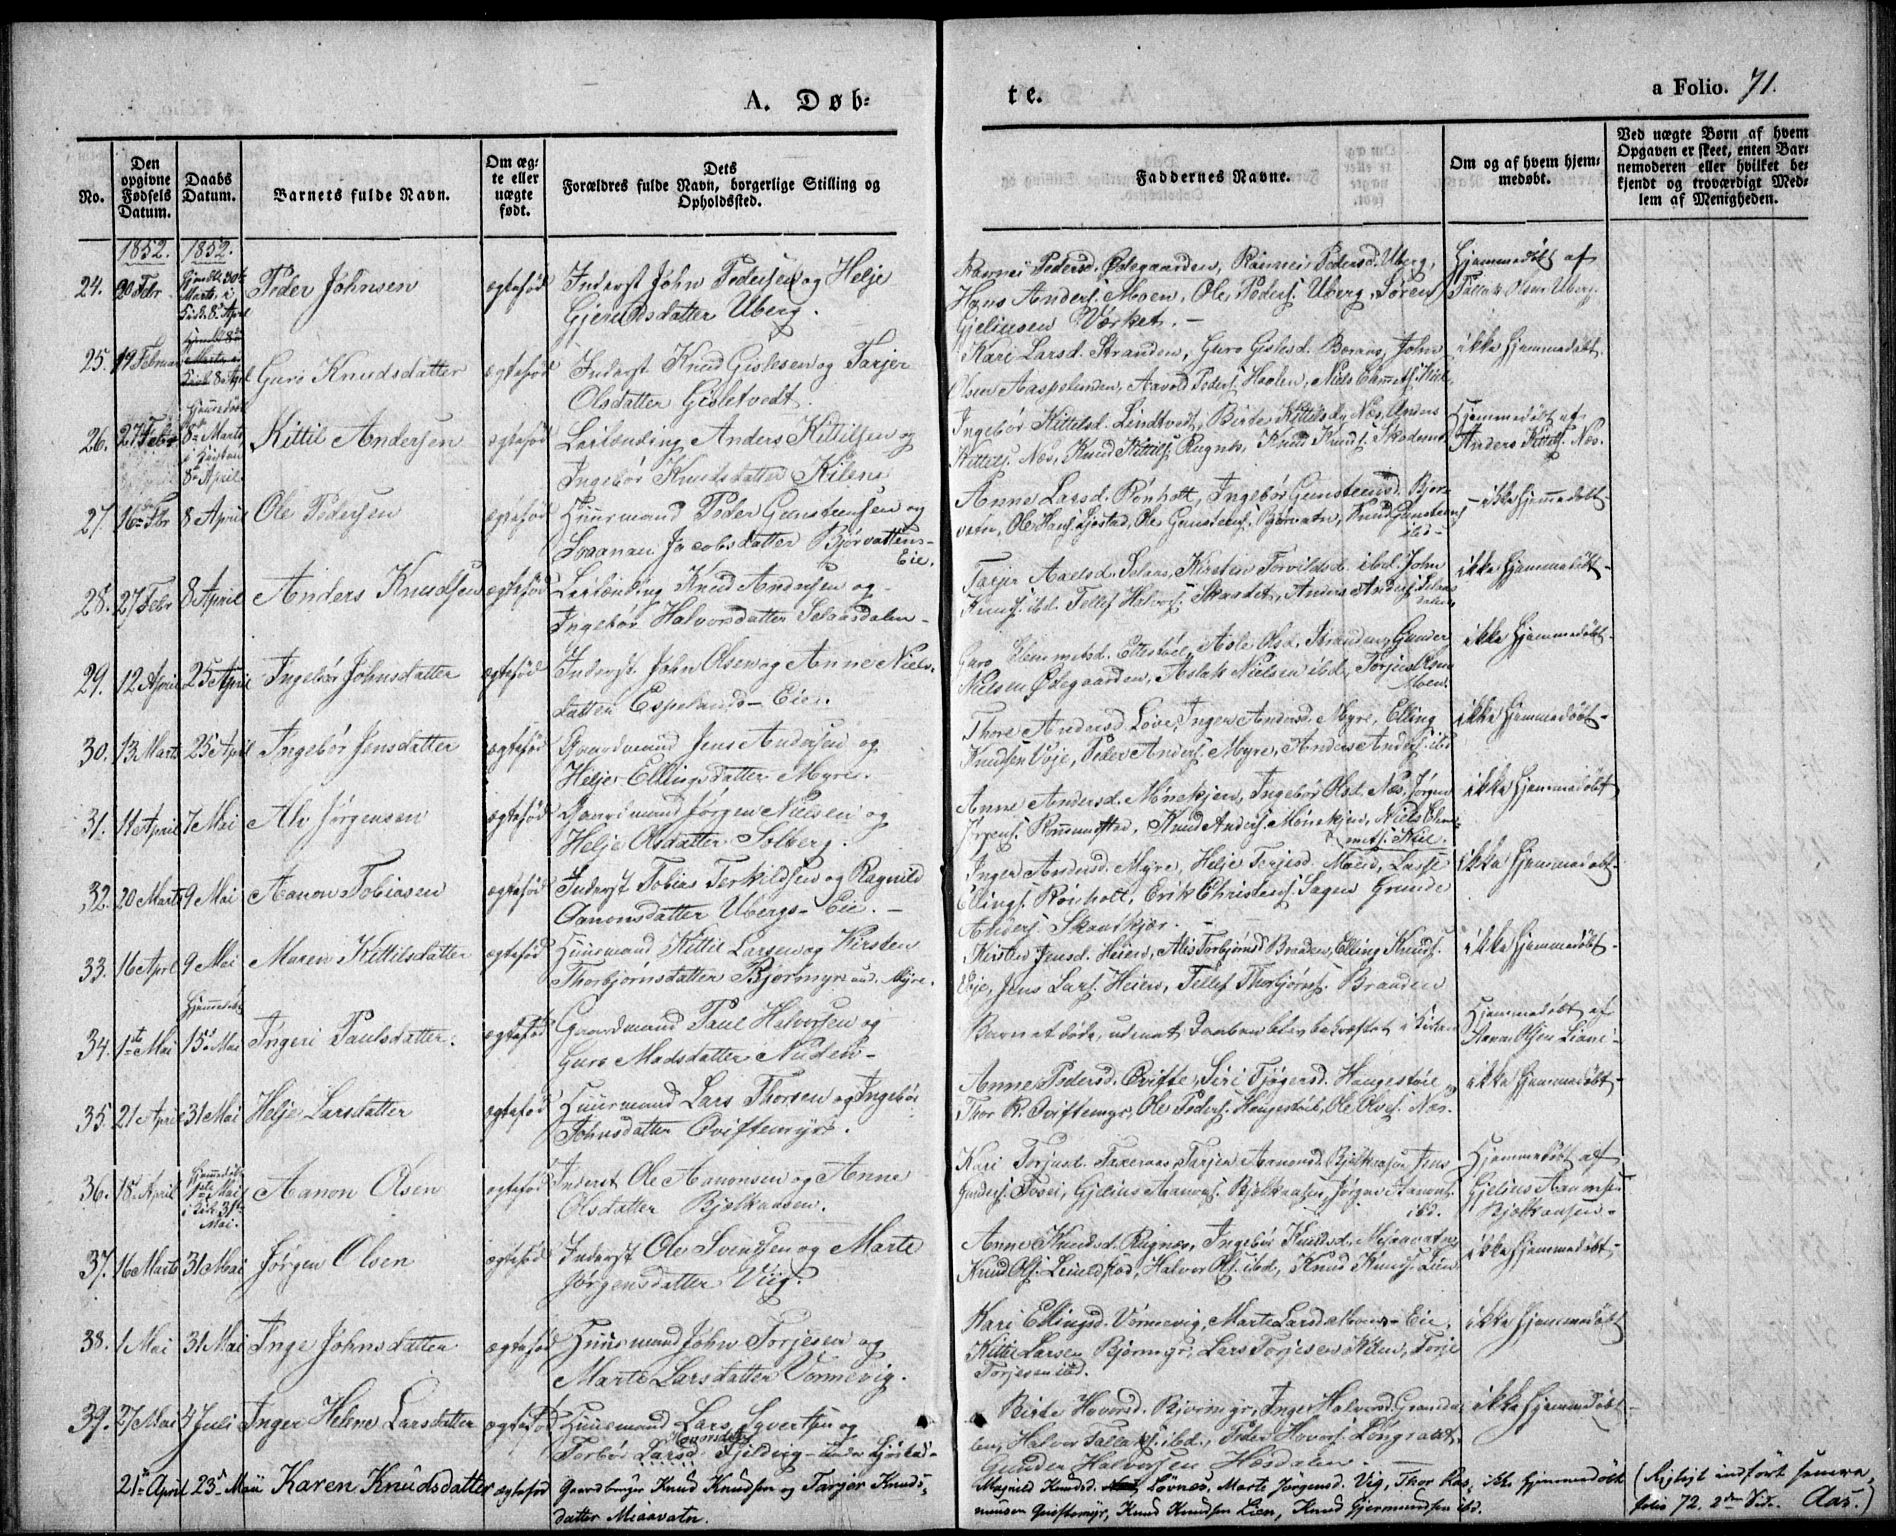 A. Døb-
te.
a Folio. 71.
No.
Den opgivne Fødsels Datum.
Daabs Datum.
Barnets fulde Navn.
Om æg-
te eller
uægte
født.
Dets
Forældres fulde Navn, borgerlige Stilling og
Opholdssted.
Faddernes Navne.
Om og af hvem hjem-
medøbt.
Ved uægte Børn af hvem
Opgaven er skeet, enten Bar-
nemoderen eller hvilket be-
kjendt og troværdigt Med-
lem af Menigheden.
1852. 1852.
24. 20 Febr Peder Johnsen ægtefød Inderst John Pedersen og Helje
Gjerulfsdatter Uberg.
Pedersd. Ødegaarden, Pedersd. Uberg,
Hans Anders. Moen, Ole Peders. Uberg, Søren
Gjeliusen Værket. -
Hjemmedøbt af
Tallak Olsen Uberg.
25. 19 Februar 8 April Guro Knudsdatter ægtefød Inderst Knud Gislesen og Tarjer
Olsdatter Gisletvedt.
Kari Larsd. Stranden, Guro Gislesd. Boraas, John
Olsen Aaspelunden, Aavold Peders. Haalen, Niels
ikke hjemmedøbt
26. 27 Febr 8de Marts 8de April Kittil Andersen ægtefød Leilending Anders Kittilsen og
Ingebør Knudsdatter Kilene
Ingebør Kittilsd. Lindtvedt, Birte Kittilsd. Næs, Anders
Kittils. Næs, Knud Kittils. Rugnæs, Knud Knuds.
Hjemmedøbt af
Anders Kittils. Næs.
27. 16de Febr 8 April Ole Pedersen ægtefød Huusmand Peder Gunsteensen og
Jacobsdatter Bjørvattens-
Eie.
Anne Larsd. Rønholt, Ingebør Gunsteensd. Bjør-
vatn, Ole Hans. Hjøstad, Ole Gunsteens. Bjørvatn, Knud Gunsteens.
ibid -
- ikke hjemmedøbt
28. 27 Febr 8 April Anders Knudsen ægtefød Leilending Knud Andersen og
Ingebør Halvorsdatter Selaasdalen -
Tarjer Axelsd. Selaas, Kirsten Torvildsd. ibid. John
Knuds. ibd. Tellef Halvors. Skaadet, Anders Anders. Selaas-
dalen
ikke hjemmedøbt -
29. 12 April 25 April Ingebør Johnsdatter ægtefød Inderst John Olsen og Anne Niels-
datter Espelands-Eie.
Guro Clemmetsd. Ettestøl, Aasle Olsd. Stranden, Gunder
Nielsen Ødegaarden, Aslak Nielsen ibid, Torjus Olsen
Moen.
ikke hjemmedøbt -
30. 13 Marts 25 April Ingebør Jensdatter ægtefød Gaardmand Jens Andersen og
Helje Ellingsdatter Myre.
Thore Andersd. Løve, Inger Andersd. Myre, Elling
Knudsen Voje, Peder Anders. Myre, Anders Anders. ibd
ikke hjemmedøbt -
31. 14 April 7 Mai Alv Jørgensen ægtefød Gaardmand Jørgen Nielsen og
Helje Olsdatter Solberg.
Anne Andersd. Mønekjen, Ingebør Olsd. Næs, Jørgen
Jørgens. Rommundstad, Knud Anders. Mønekjen, Niels Clem-
mets. Kiil.
ikke hjemmedøbt
32. 20 Marts 9 Mai Aanon Tobiasen ægtefød Inderst Tobias Terkildsen og Ragnild
Aanonsdatter Ubergs-Eie. -
Inger Andersd. Myre, Helje Terjesd. Moland, Lasse
Ellings. Rønholt, Erik Christens. Sagen Grunde
Anders. Skautkjær.
ikke hjemmedøbt -
33. 16 April 9 Mai Maren Kittilsdatter ægtefød Huusmand Kittil Larsen og Kirsten
Thorbjornsdatter Bjørmyr und. Myre.
Kirsten Jensd. Heien, Alis Torbjørnsd. Braaden, Elling Knuds.
Voje, Jens Lars. Heien, Tellef Thorbjørns. Braaden
ikke hjemmedøbt -
34. 1ste Mai hjemmedøbt 15de Mai Ingeri Paulsdatter. ægtefød Gaardmand Paul Halvorsen og
Guro Madsdatter Nuden -
Barnet døde, udenat Daaben blev bekræftet i Kirken
Hjemmedøbt af
Aanon Olsen Liane -
35. 21 April 31 Mai Helje Larsdatter ægtefød Huusmand Lars Thorsen og Ingebør
Johnsdatter Qviftemyr.
Anne Pedersd. Qvifte, Siri Tjøgersd. Haugestøle
Thor R. Qviftemyr, Ole Peders. Haugestøl, Ole Olss. Næs.
ikke hjemmedøbt -
36. 18de April hjemmedøbt 1ste Mai i Kirk. 31te Mai. Aanon Olsen ægtefød Inderst Ole Aanonsen og Anne
Olsdatter Bjelkaasen.
Kari Torjusd. Taxeraas, Tarjer Aanonsd. Bjelkaasen, Jens
Gunders. Fosse, Gjelius Aanons. Bjelkaasen, Jørgen Aanons.
ibd.
Hjemmedøbt af
Gjelius Aanonsen
Bjelkaasen -
37. 16 Marts 31 Mai Jørgen Olsen ægtefød Inderst Ole Svendsen og Marte
Jørgensdatter Viig.
Anne Knudsd. Rugnæs, Ingebør Knudsd. Mjaavatn,
Knud Ols. Lundstød, Halvor Ols. ibd, Knud Knuds. Lien
ikke hjemmedøbt -
38. 1 Mai 31 Mai Inge Johnsdatter ægtefød Huusmand John Torjesen og
Marte Larsdatter Vormevig.
Kari Ellingsd. Vormevig, Marte Larsd. Moens-Eie,
Kittil Larsen Bjørmyr, Lars Torjesen Kilen, Torje
Torjesen ibd.
ikke hjemmedøbt
39. 27 Mai 4 Juli Inger Helene Larsdatter ægtefød Huusmand Lars Syvertsen og
Torbør Larsd. Hovorsdatter Fjeldvig - under Hjørtdal -
- Birte Hovorsd. Bjørmyr, Inger Halvorsd. Grændo-
len, Halvor Tallaks. ibd., Peder Hovors. Longvatn,
Gunder Halvorsen Hæsdalen. -
ikke hjemmedøbt -
21de April 23de Mai Karen Knudsdatter ægtefød Gaardbruger Knud Knudsen og Tarjer Knuds-
datter Miaavatn.
Magnild Knudsd. Løvnæs, Marte Jørgensd. Vig, Thor Ras-
mussen Qviftemyr, Knud Knudsen Lien, Knud Gjermundsen ibd.
ikke hjemmedøbt
(Rigtigt indført senere,
folio 72. 2den Side. Aas.)